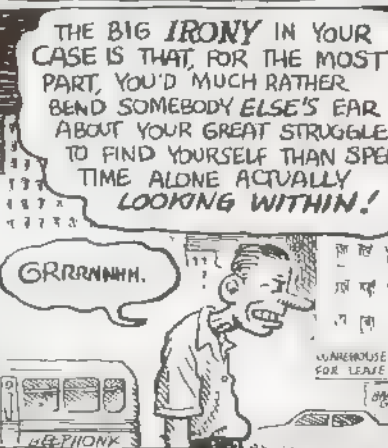 THE BIG IRONY IN YOUR
CASE IS THAT, FOR THE MOST
PART, YOU'D MUCH RATHER
BEND SOMEBODY ELSE'S EAR
ABOUT YOUR GREAT STRUGGLE
TO FIND YOURSELF THAN SPE
TIME ALONE ACTUALLY
LOOKING WITHIN!
GRRRNNHH.
WAREHOUSE
FOR LEASE